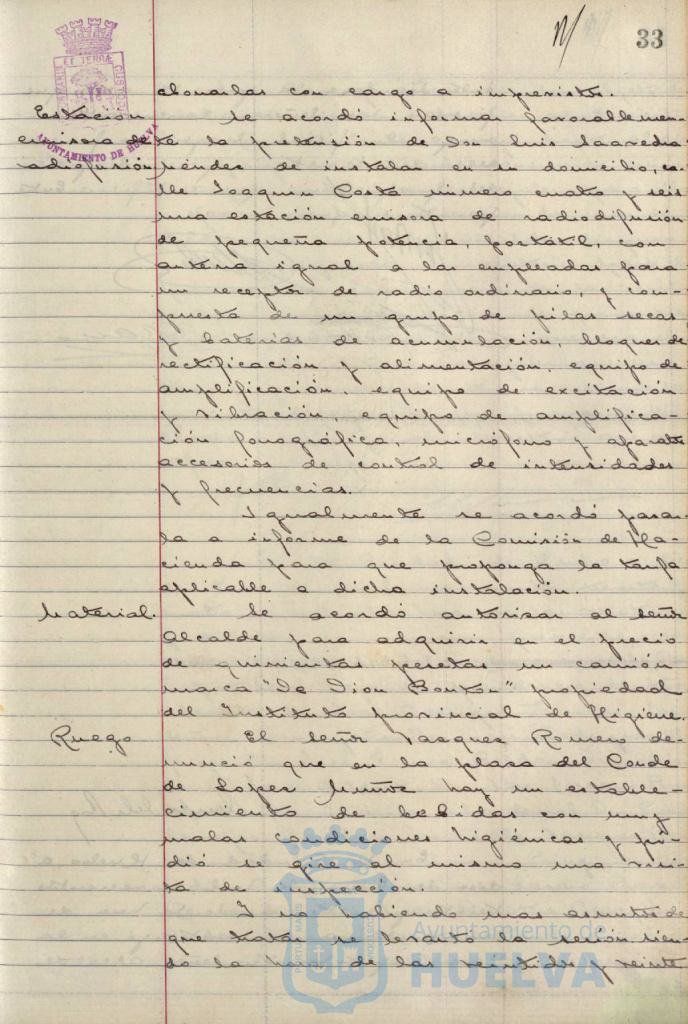 33
abonarlas con cargo a imprevistos.
Estación
emisora de
radiofusión
Se acordó informar favorablemen-
te la pretensión de Don Luis Saavedra
Méndez de instalar en su domicilio, ca-
lle Joaquin Costa número cuatro y seis
una estación emisora de radiodifusión
de pequeña potencia, portátil, con
antena igual a las empleadas para
un receptor de radio ordinario, y com-
puesta de un grupo de pilas secas
y baterias de acumulación, bloques de
rectificación y alimentación, equipo de
amplificación, equipo de excitación
y vibración, equipo de amplifica-
ción fonográfica, micrófono y aparatos
accesorios de control de intensidades
y frecuencias.
Igualmente se acordó pasar-
la a informe de la Comisión de Ha-
cienda para que proponga la tarifa
aplicable a dicha instalación.
Material.
Se acordó autorizar al señor
Alcalde para adquirir en el precio
de quinientas pesetas un camión
marca "De Dion Bouton" propiedad
del Instituto provincial de Higiene.
Ruego
El señor Vazquez Romero de-
nunció que en la plaza del Conde
de Lopez Muñoz hay un estable-
cimiento de bebidas con muy
malas condiciones higiénicas y pi-
dió se gire al mismo una visi-
ta de inspección.
Y no habiendo mas asuntos de
que tratar se levantó la sesión sien-
do la hora de las veintidos y veinte
AYUNTAMIENTO DE HUELVA
Ayuntamiento de
HUELVA